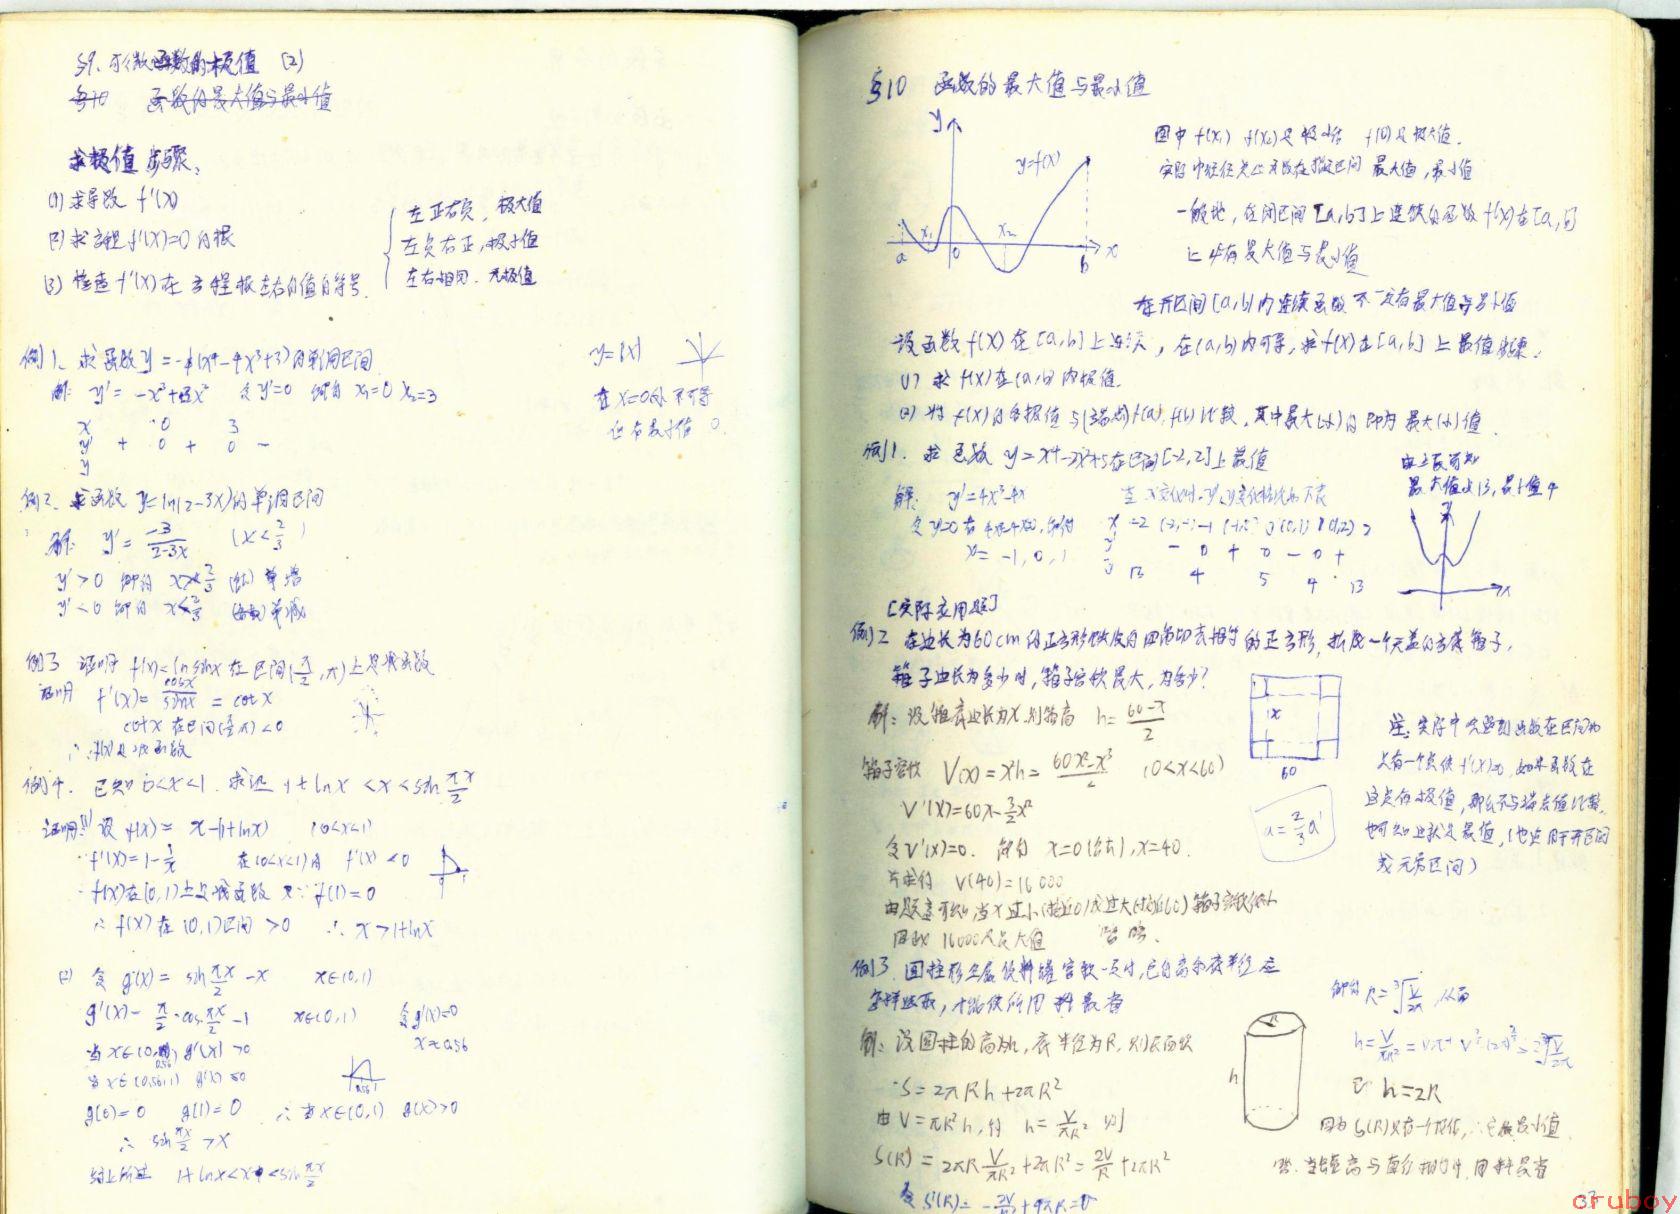 §9. 可微函数的极值 (2)
§10 函数的最大值与最小值
求极值步骤:
(1) 求导数 f'(x)
(2) 求方程 f'(x)=0 的根
(3) 检查 f'(x) 在方程根左右的值的符号.
左正右负, 极大值
左负右正, 极小值
左右相同. 无极值
例1. 求函数 y = -¼(x⁴-4x³+3) 的单调区间
解: y' = -x³+3x² 令 y'=0 解得 x₁=0 x₂=3
x 0 3
y' + 0 + 0 -
y
y=|x|
在 x=0处不可导
但有最小值 0.
例2. 求函数 y=ln(2-3x)的单调区间
解: y' = -3/(2-3x) (x<2/3)
y'>0 解得 x>2/3 (舍) 单增
y'<0 解得 x<2/3 单减
例3 证明 f(x)=ln sinx 在区间(π/2, π)上是减函数
证明 f'(x)= cosx/sinx = cotx
cotx 在区间(π/2, π) <0
∴ f(x)是减函数
例4. 已知 0<x<1. 求证 1+lnx <x<sin πx/2
证明:(1) 设 f(x)= x-(1+lnx) (0<x<1)
f'(x)=1-1/x 在(0<x<1)内 f'(x)<0
f(x)在(0,1)上是减函数 又∵ f(1)=0
∴ f(x)在(0,1)区间>0 ∴ x>1+lnx
(2) 令 g(x)= sin πx/2 -x x∈(0,1)
g'(x)= π/2·cos πx/2 -1 x∈(0,1) 令g'(x)=0
x≈0.56
当 x∈(0,0.56) g'(x)>0
当 x∈(0.56,1) g'(x)<0
g(0)=0 g(1)=0 ∴当x∈(0,1) g(x)>0
∴ sin πx/2 >x
综上所述 1+lnx<x<sin πx/2
§10 函数的最大值与最小值
y
y=f(x)
a x₁ 0 x₂ b x
图中 f(x₁) f(x₂)是极小值 f(0)是极大值.
最大值, 最小值
一般地, 在闭区间[a,b]上连续的函数 f(x)在[a,b]
上必有最大值与最小值
在开区间(a,b)内连续函数不一定有最大值与最小值
设函数 f(x)在[a,b]上连续, 在(a,b)内可导, 求f(x)在[a,b]上最值步骤:
(1) 求 f(x)在(a,b)内极值.
(2) 将 f(x)的各极值与(端点)f(a), f(b)比较, 其中最大(小)的即为最大(小)值.
例1. 求函数 y=x⁴-2x²+5在区间[-2,2]上最值
解: y'=4x³-4x 当x变化时, y', y变化情况如下表
令y'=0 有 4x³-4x=0, 解得
x= -1, 0, 1
x -2 (-2,-1) -1 (-1,0) 0 (0,1) 1 (1,2) 2
y' - 0 + 0 - 0 +
y 13 4 5 4 13
由上表可知
最大值为13, 最小值4
x
[实际应用题]
例2 在边长为60cm的正方形铁皮的四角切去相等的正方形, 折成一个无盖的方底箱子,
箱子边长为多少时, 箱子容积最大, 为多少?
解: 设箱底边长为x, 则箱高 h= (60-x)/2
箱子容积 V(x)=x²h= (60x²-x³)/2 (0<x<60)
V'(x)=60x-3/2x²
令V'(x)=0. 解得 x=0(舍去), x=40.
并求得 V(40)=16000
由题意可知当x过小(接近0)或过大(接近60)箱子容积很小
因此 16000是最大值 答略.
x
60
a=2/3a'
注: 实际中遇到函数在区间内
只有一个点使f'(x)=0, 如果函数在
这点有极值, 那么不与端点值比较,
也可知这就是最值, (也适用于开区间
或无穷区间)
例3. 圆柱形金属饮料罐容积一定时, 它的高和底半径应
怎样选取, 才能使所用材料最省
解: 设圆柱的高为h, 底半径为R, 则表面积
S=2πRh+2πR²
由 V=πR²h, 得 h= V/πR² 则
S(R)= 2πR V/πR² +2πR²= 2V/R +2πR²
令 S'(R)= -2V/R² +4πR=0
h
解得 R=³√(V/2π), 从而
h= V/πR²
即 h=2R
因为S(R)只有一个极值, ∴它是最小值
答. 当罐高与直径相等时, 用料最省
37
cruboy